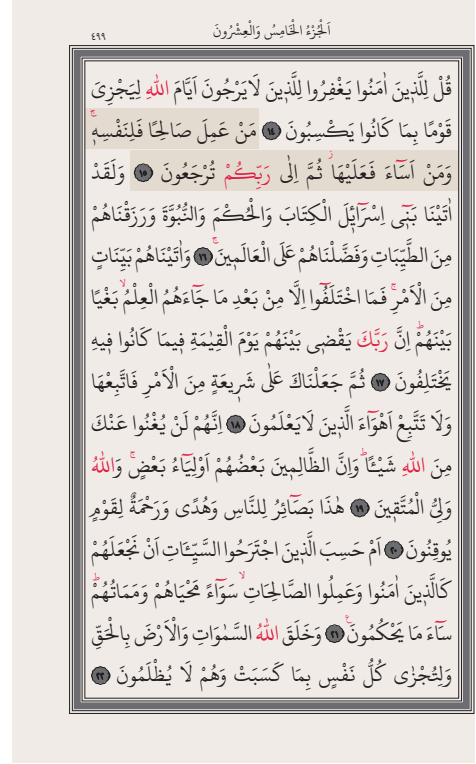 اَلْجُزْءُ الْخَامِسُ وَالْعِشْرُونَ
٤٩٩
قُلْ لِلَّذ۪ينَ اٰمَنُوا يَغْفِرُوا لِلَّذ۪ينَ لَايَرْجُونَ اَيَّامَ اللّٰهِ لِيَجْزِيَ
قَوْمًا بِمَا كَانُوا يَكْسِبُونَ ١٤ مَنْ عَمِلَ صَالِحًا فَلِنَفْسِه۪ۚ
وَمَنْ اَسَٓاءَ فَعَلَيْهَاۘ ثُمَّ اِلٰى رَبِّكُمْ تُرْجَعُونَ ١٥ وَلَقَدْ
اٰتَيْنَا بَن۪ٓي اِسْرَٓائ۪لَ الْكِتَابَ وَالْحُكْمَ وَالنُّبُوَّةَ وَرَزَقْنَاهُمْ
مِنَ الطَّيِّبَاتِ وَفَضَّلْنَاهُمْ عَلَى الْعَالَم۪ينَۚ ١٦ وَاٰتَيْنَاهُمْ بَيِّنَاتٍ
مِنَ الْاَمْرِۚ فَمَا اخْتَلَفُٓوا اِلَّا مِنْ بَعْدِ مَا جَٓاءَهُمُ الْعِلْمُۙ بَغْيًا
بَيْنَهُمْۜ اِنَّ رَبَّكَ يَقْض۪ي بَيْنَهُمْ يَوْمَ الْقِيٰمَةِ ف۪يمَا كَانُوا ف۪يهِ
يَخْتَلِفُونَ ١٧ ثُمَّ جَعَلْنَاكَ عَلٰى شَر۪يعَةٍ مِنَ الْاَمْرِ فَاتَّبِعْهَا
وَلَا تَتَّبِعْ اَهْوَٓاءَ الَّذ۪ينَ لَايَعْلَمُونَ ١٨ اِنَّهُمْ لَنْ يُغْنُوا عَنْكَ
مِنَ اللّٰهِ شَيْـًٔاۜ وَاِنَّ الظَّالِم۪ينَ بَعْضُهُمْ اَوْلِيَٓاءُ بَعْضٍۚ وَاللّٰهُ
وَلِيُّ الْمُتَّق۪ينَ ١٩ هٰذَا بَصَٓائِرُ لِلنَّاسِ وَهُدًى وَرَحْمَةٌ لِقَوْمٍ
يُوقِنُونَ ٢٠ اَمْ حَسِبَ الَّذ۪ينَ اجْتَرَحُوا السَّيِّـَٔاتِ اَنْ نَجْعَلَهُمْ
كَالَّذ۪ينَ اٰمَنُوا وَعَمِلُوا الصَّالِحَاتِۙ سَوَٓاءً مَحْيَاهُمْ وَمَمَاتُهُمْۜ
سَٓاءَ مَا يَحْكُمُونَ۟ ٢١ وَخَلَقَ اللّٰهُ السَّمٰوَاتِ وَالْاَرْضَ بِالْحَقِّ
وَلِتُجْزٰى كُلُّ نَفْسٍ بِمَا كَسَبَتْ وَهُمْ لَا يُظْلَمُونَ ٢٢